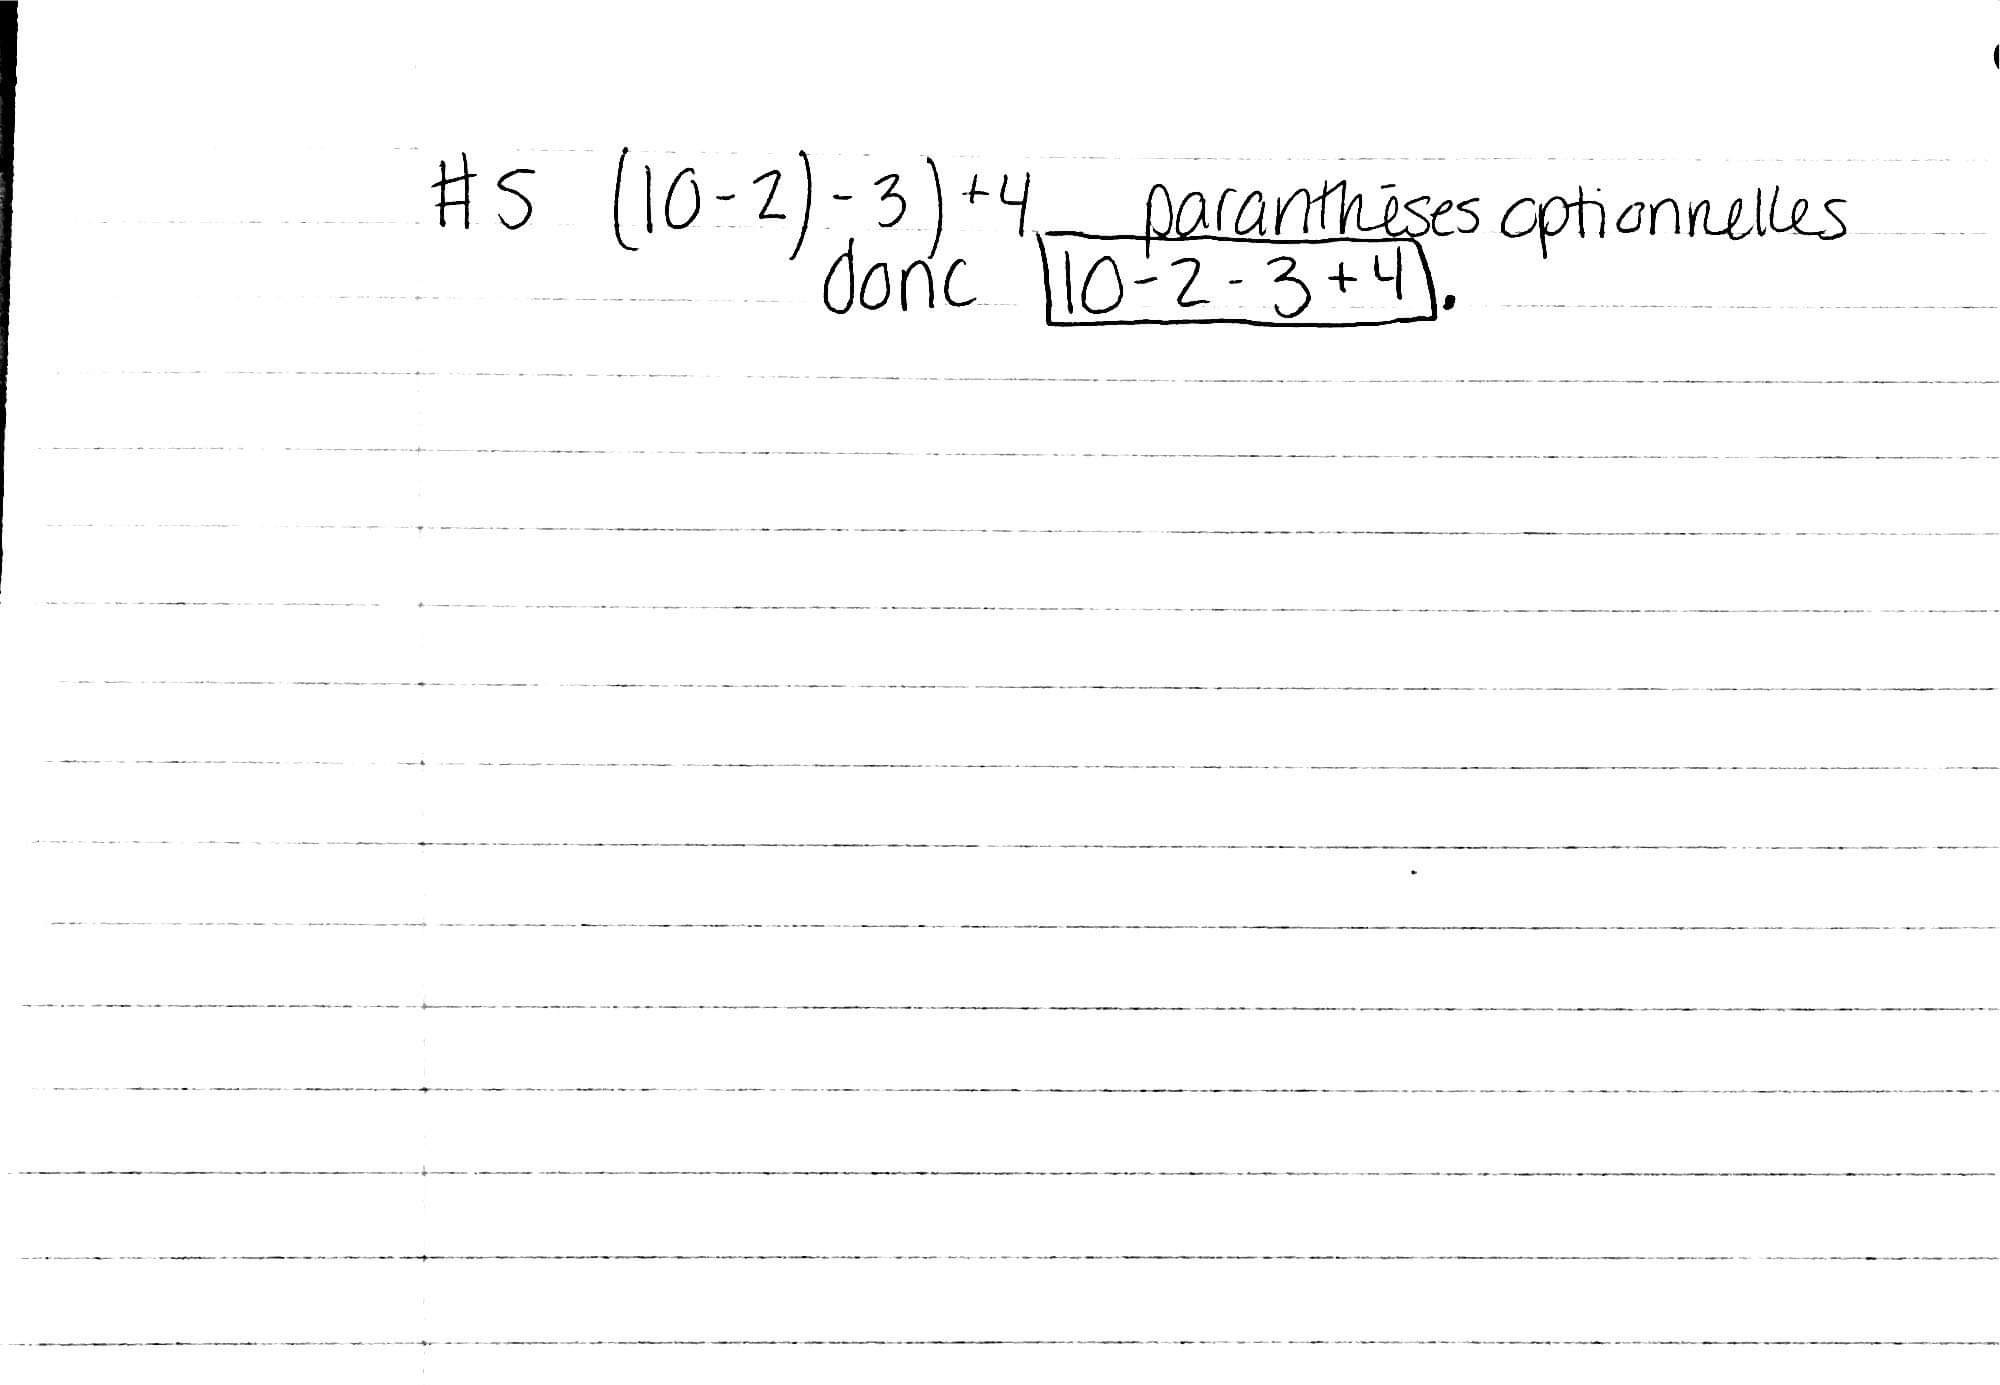 #5 (10-2)-3)+4 paranthèses optionnelles
donc 10-2-3+4.